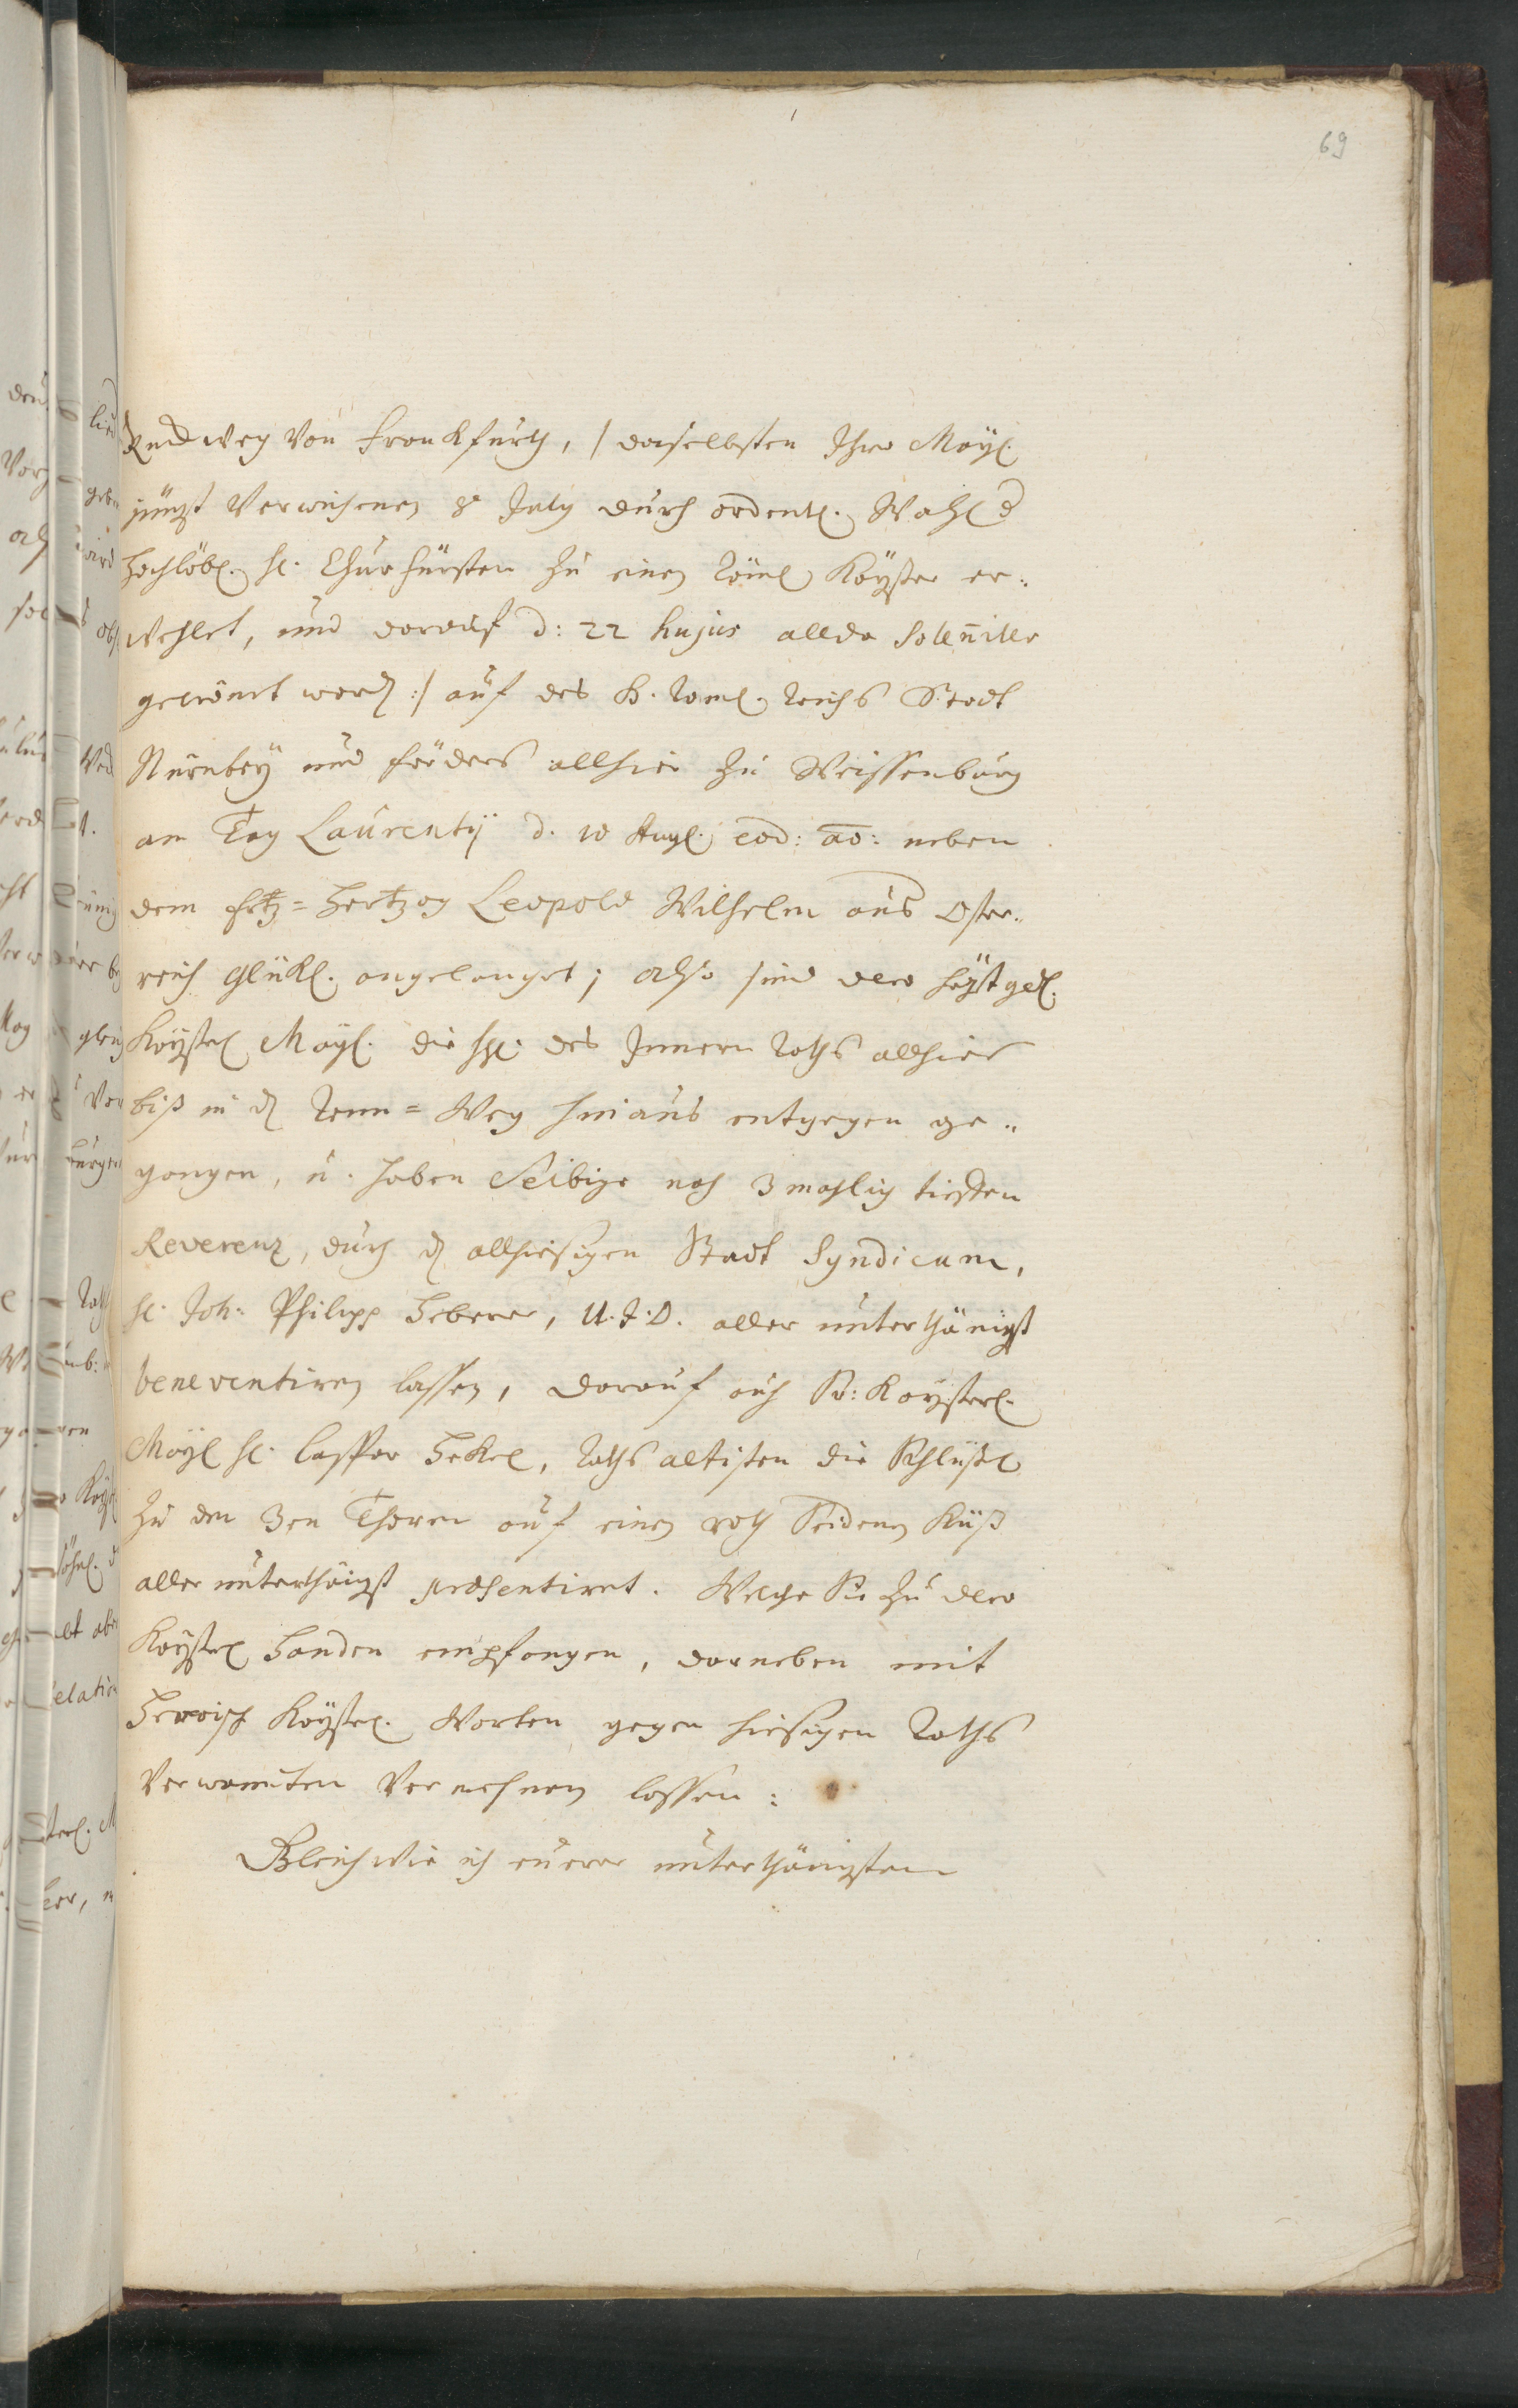 69
Ruckweg von Franckfurth, /: daselbsten Ihro Mayl.
jüngst verwichenen 8t July durch ordentl. Wahl d
Hochlöbl. H. Churfürsten zu einem Röml Käyser er-
wehlet, und darauf d: 22 hujus allda Solenniter
gecrönet word :/ auf des H. Röml. Reichs Stadt
Nürnberg und förders allhier zu Weissenburg
am Tag Laurentij d. 10 Augl. eod: ao: neben
dem Ertz=Hertzog Leopold Wilhelm aus Oster-
reich Glükl. angelanget; Also sind dero höchstgedl.
Kaysrl Mayl. die HH. des Innern Raths allhier
biß in d Renn=Weg hinaus entgegen ge-
gangen, u. haben Selbige nach 3 mahlig tieffen
Reverenz, durch d allhiesigen Stadt Syndicum,
H. Joh: Philipp Heberer, U.J.D. aller unterthänigst
beneventiren lassen, darauf auch Sr: Kayserl.
Mayl H. Caspar Hekel, Raths altisten die Schlüssel
zu den 3en Thoren auf einem roth Seidenen Küß
aller unterthänigst præsentiret. Welche Sie zu dero
Kaysrl Handen empfangen, darneben mit
Heroisch Kaysrl. Worten gegen hiesigen Raths
Verwanten vernehmen lassen:
Gleichwie ich euerer unterthänigsten